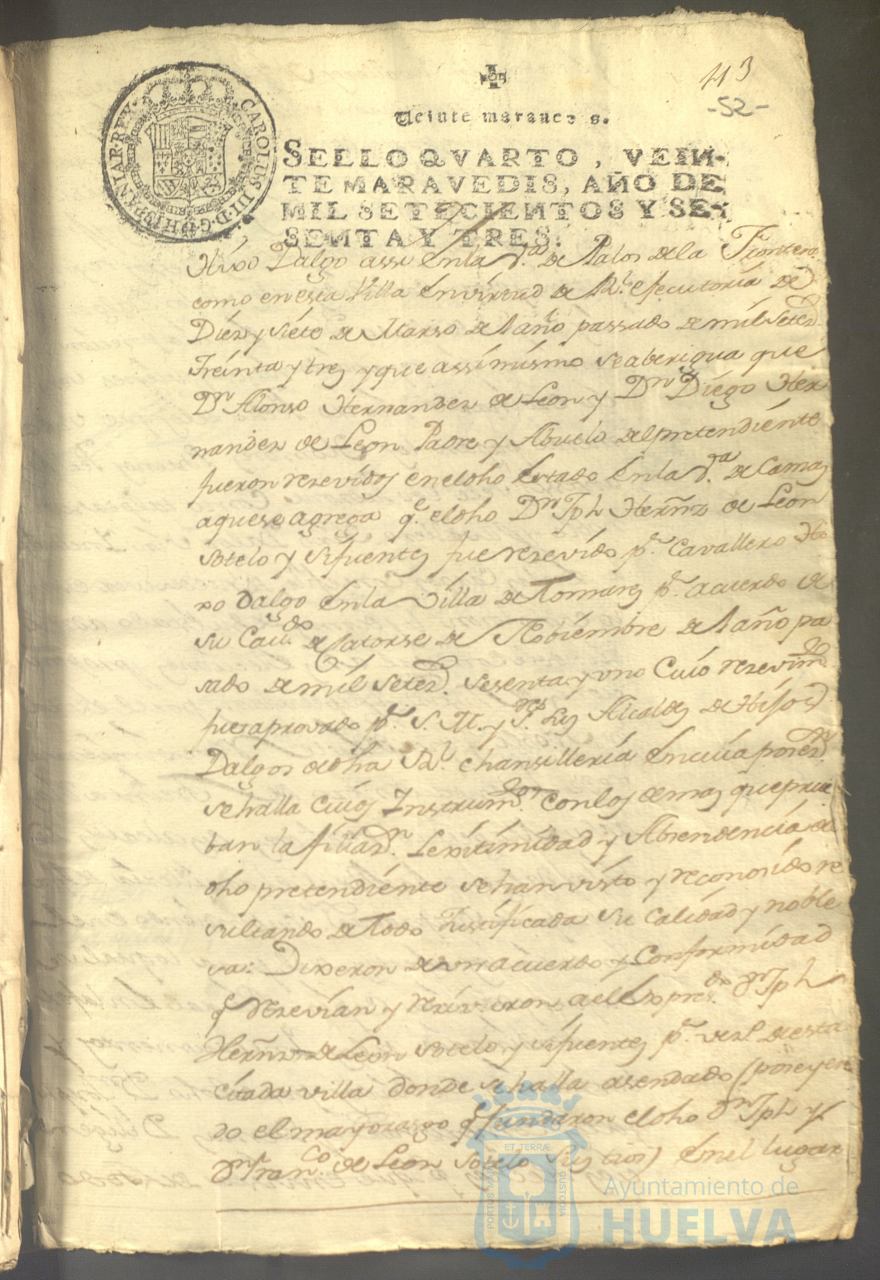 113
-52-
CAROLUS III D.G. HISPANIAR. REX
Veinte maravedis.
SELLO QVARTO, VEIN-
TE MARAVEDIS, AÑO DE
MIL SETECIENTOS Y SE-
SENTA Y TRES.
Hixo Dalgo assi en la va. de Palos de la Frontera
como en esta Villa en virtud de Rl. executoria de
Diez y siete de Marso del año passado de mil setez.
treinta y tres y que assimismo se aberigua que
Dn. Alonso Hernandez de Leon y Dn. Diego Her
nandez de Leon Padre y Abuelo del pretendiente
fueron resevidos en el dho estado en la va. de Camas
a que se agrega qe. el dho Dn Jph Hernz de Leon
Sotelo y Sifuentes fue resevido pr. Cavallero Hi
xo dalgo en la Villa de Tomares pr. acuerdo de
su Cavdo. de Catorse de Nobiembre del año pa
sado de mil setez. sesenta y uno Cuio resevimto.
fue aprovado pr. S. M. y Sres. sus Alcaldes de Hijos
Dalgos de dha Rl. chansilleria en cuia
se halla cuios Instrumtos. con los demas que prue
ban la filiazn. Lexitimidad y desendencia de
dho pretendiente se han visto y reconosido re
sultando de todo Justificada su calidad y noble
za: Dixeron de un acuerdo y Conformidad
qe. resevian y resivieron a el expresdo. Dn Jph
Hernz de Leon Sotelo y Sifuentes pr. vezo. de esta
citada villa donde se halla asendado (poseyen
do el mayorasgo qe. fundaron el dho Dn Jph y
Dn Franco. de Leon Sotelo sus tios) en el lugar
PORTUS MARIS ET TERRÆ CUSTODIA
Ayuntamiento de
HUELVA